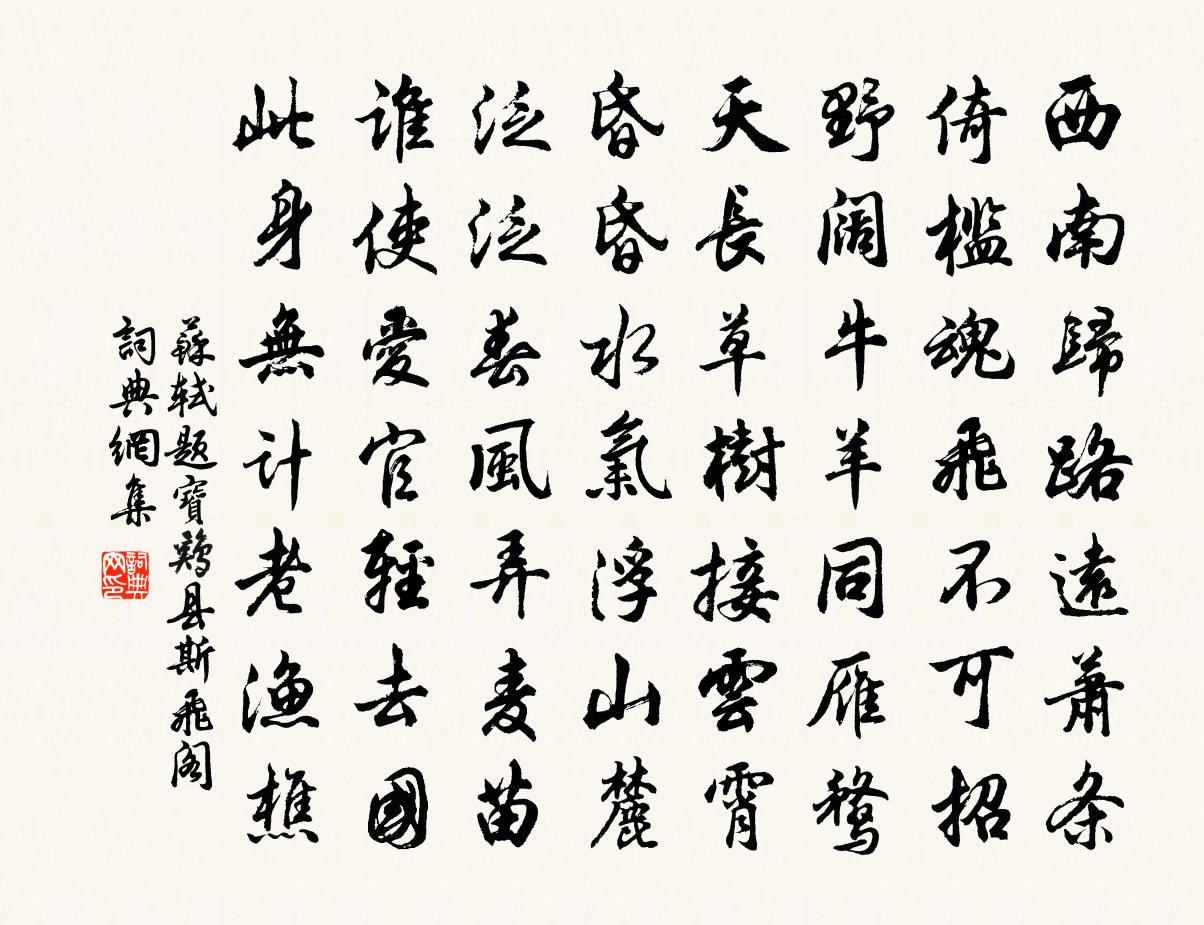 西南歸路遠萧条
倚檻魂飛不可招
野阔牛羊同雁鶩
天長草樹接雲霄
昏昏水氣浮山麓
泛泛春風弄麦苗
誰使愛官輕去國
此身無計老漁樵
蘇轼题寶鶏县斯飛阁
詞典網集
詞典网印